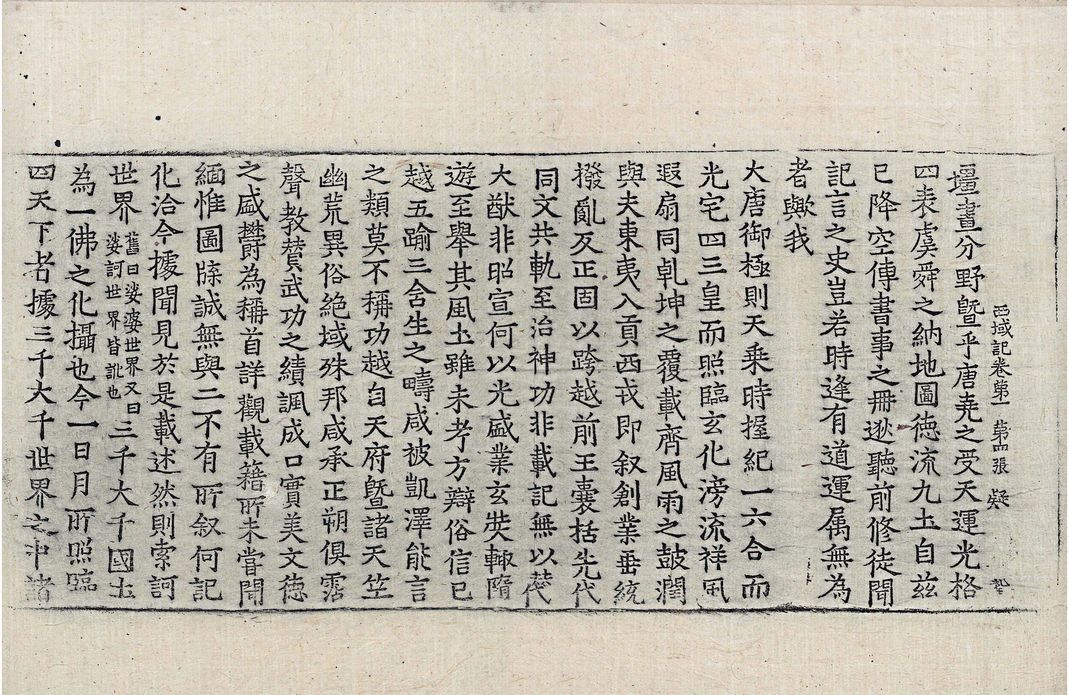 西域記卷第一 第四張 疑
壃畫分野曁乎唐堯之受天運光格
四表虞舜之納地圖德流九土自茲
已降空傳書事之冊逖聽前修徒聞
記言之史豈若時逢有道運属無為
者歟我
大唐御極則天乘時握紀一六合而
光宅四三皇而照臨玄化滂流祥風
遐扇同乹坤之覆載齊風雨之鼓潤
與夫東夷入貢西戎即叙創業垂統
撥亂反正固以跨越前王囊括先代
同文共軌至治神功非載記無以贊
大猷非昭宣何以光盛業玄奘輙隨
遊至舉其風土雖未考方辯俗信已
越五踰三含生之疇咸被凱澤能言
之類莫不稱功越自天府曁諸天竺
幽荒異俗絶域殊邦咸承正朔俱霑
聲教賛武功之績諷成口實美文德
之盛欝為稱首詳觀載籍所未嘗聞
緬惟圖牒誠無與二不有所叙何記
化洽今據聞見於是載述然則索訶
世界舊曰娑婆世界又曰娑訶世界皆訛也三千大千國土
為一佛之化攝也今一日月所照臨
四天下者據三千大千世界之中諸